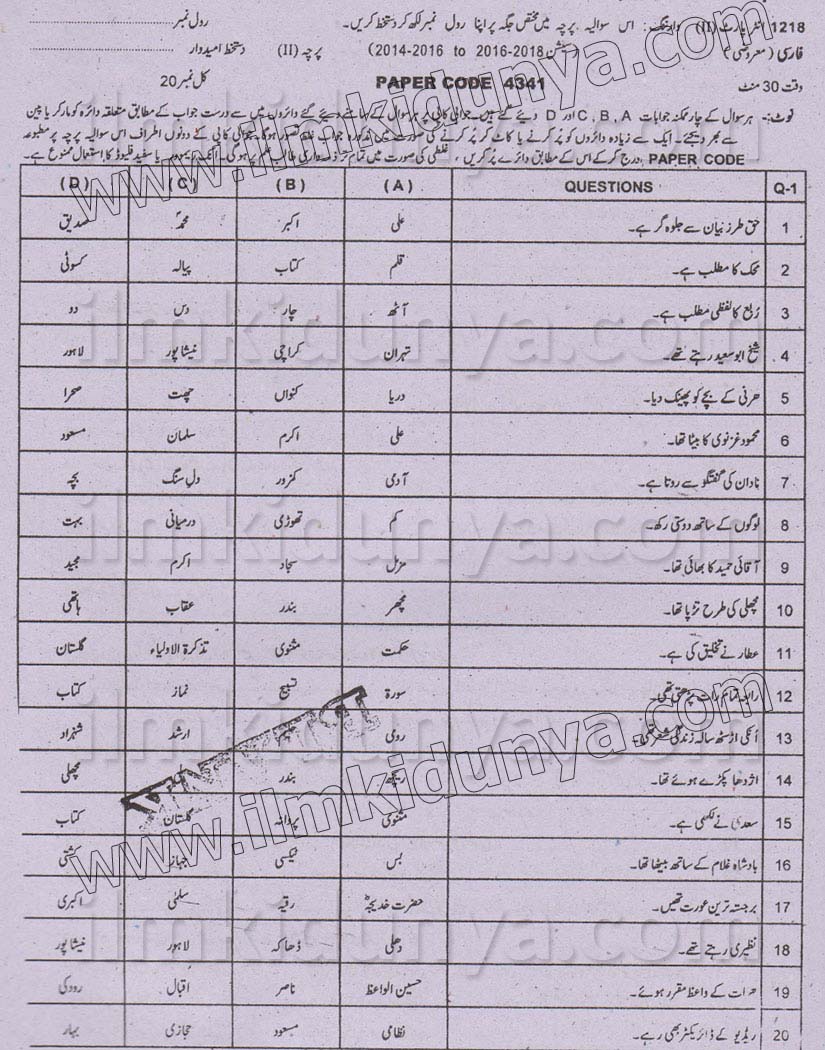 1218 انٹر پارٹ (II) وارننگ: اس سوالیہ پرچہ میں مختص جگہ پر اپنا رول نمبر لکھ کر دستخط کریں۔ رول نمبر
فارسی (معروضی) (سیشن 2016-2018 to 2014-2016) پرچہ (II) دستخط امیدوار
وقت 30 منٹ PAPER CODE 4341 کل نمبر 20
نوٹ:- ہر سوال کے چار ممکنہ جوابات A، B، C اور D دیئے گئے ہیں۔ جوابی کاپی پر ہر سوال کے سامنے دیئے گئے دائروں میں سے درست جواب کے مطابق متعلقہ دائرہ کو مارکر یا پین
سے بھر دیجئے۔ ایک سے زیادہ دائروں کو پُر کرنے یا کاٹ کر پُر کرنے کی صورت میں مذکورہ جواب غلط تصور ہوگا۔ جوابی کاپی کے دونوں اطراف اس سوالیہ پرچہ پر مطبوعہ
PAPER CODE درج کر کے اس کے مطابق دائرے پُر کریں، غلطی کی صورت میں تمام تر ذمہ داری طالب علم پر ہوگی۔ انک ریموور یا سفید فلیوڈ کا استعمال ممنوع ہے۔
Q-1 QUESTIONS (A) (B) (C) (D)
1 حق طرز بیان سے جلوہ گر ہے۔ علی اکبر محمدؐ صدیق
2 محک کا مطلب ہے۔ قلم کتاب پیالہ کسوٹی
3 رُبع کا لفظی مطلب ہے۔ آٹھ چار دس دو
4 شیخ ابو سعید رہتے تھے۔ تہران کراچی نیشاپور لاہور
5 ہرنی کے بچے کو پھینک دیا۔ دریا کنواں چھت صحرا
6 محمود غزنوی کا بیٹا تھا۔ علی اکرم سلمان مسعود
7 نادان کی گفتگو سے روتا ہے۔ آدمی کمزور دلِ سنگ بچہ
8 لوگوں کے ساتھ دوستی رکھ۔ کم تھوڑی درمیانی بہت
9 آقائی حمید کا بھائی تھا۔ مزمل سجاد اکرم مجید
10 مچھلی کی طرح تڑپا تھا۔ مچھر بندر عقاب ہاتھی
11 عطار نے تخلیق کی ہے۔ حکمت مثنوی تذکرۃ الاولیاء گلستان
12 رابعہ تمام رات پڑھتی تھی۔ سورۃ تسبیح نماز کتاب
13 انکی اڑسٹھ سالہ زندگی گزر گئی۔ رومی ارشد شہزاد
14 اژدھا پکڑے ہوئے تھا۔ ریچھ بندر مچھلی
15 سعدی نے لکھی ہے۔ مثنوی پروانہ گلستان کتاب
16 بادشاہ غلام کے ساتھ بیٹھا تھا۔ بس ٹیکسی جہاز کشتی
17 برجستہ ترین عورت تھیں۔ حضرت خدیجہؓ رقیہ سلمیٰ اکبری
18 نظیری رہتے تھے۔ دھلی ڈھاکہ لاہور نیشاپور
19 ہرات کے واعظ مقرر ہوئے۔ حسین الواعظ ناصر اقبال رودکی
20 ریڈیو کے ڈائریکٹر بھی رہے۔ نظامی مسعود حجازی بہار
www.ilmkidunya.com
ilmkidunya.com